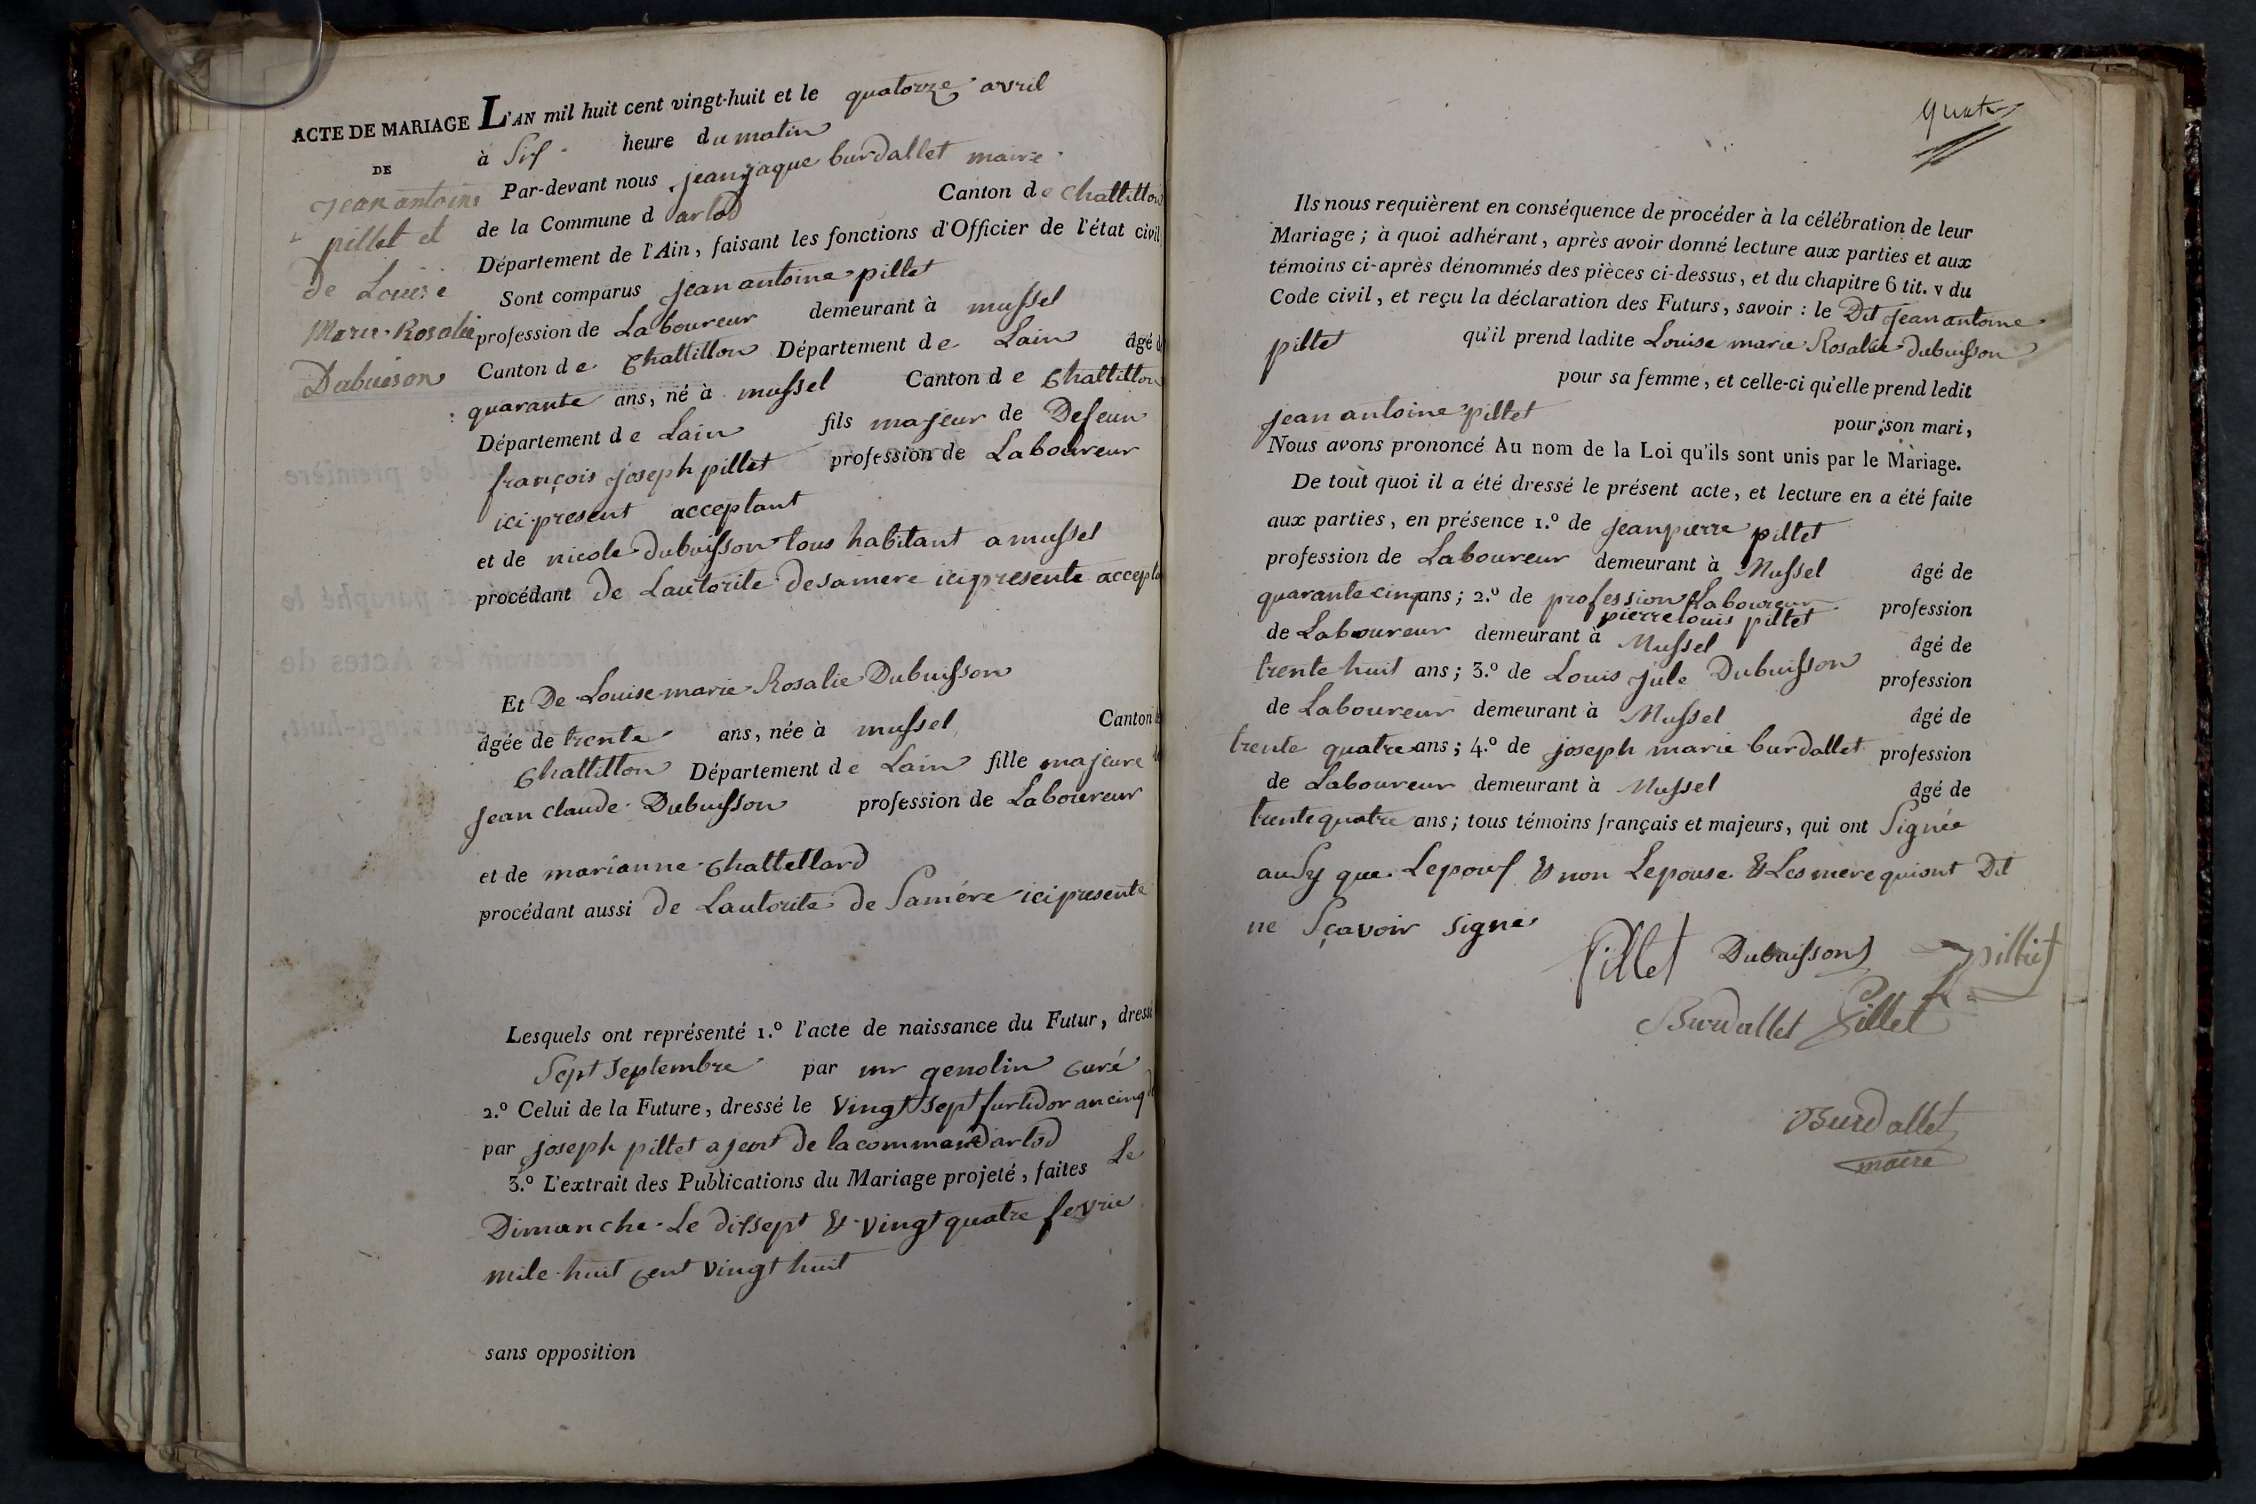 ACTE DE MARIAGE
DE
jean antoine
pillet et
de Louise
Marie Rosalie
Dubuison
L'AN mil huit cent vingt-huit et le quatorze avril
à Sis heure du matin
Par-devant nous jean jaque burdallet maire
de la Commune d arlod Canton de Chatillon
Département de l'Ain, faisant les fonctions d'Officier de l'état civil
Sont comparus jean antoine pillet
profession de Laboureur demeurant à mussel
Canton de Chatillon Département de Lain âgé de
quarante ans, né à mussel Canton de Chatillon
Département de Lain fils majeur de Defeun
françois joseph pillet profession de Laboureur
ici present acceptant
et de nicole dubuisson tous habitant a mussel
procédant de Lautorite desamere icipresente
Et De Louise marie Rosalie Dubuisson
âgée de trente ans, née à mussel Canton de
Chatillon Département de Lain fille majeure de
jean claude Dubuisson profession de Laboureur
et de marianne Chattellard
procédant aussi de Lautorité de Samére ici presente
Lesquels ont représenté 1.º l'acte de naissance du Futur, dressé
Sept Septembre par mr genolin curé
2.º Celui de la Future, dressé le Vingt sept furtidor an cinq
par joseph pillet ajent de la commune d'arlod
3.º L'extrait des Publications du Mariage projeté, faites Le
Dimanche Le dissept & vingt quatre fevrie
mile huit cent vingt huit
sans opposition
Ils nous requièrent en conséquence de procéder à la célébration de leur
Mariage; à quoi adhérant, après avoir donné lecture aux parties et aux
témoins ci-après dénommés des pièces ci-dessus, et du chapitre 6 tit. v du
Code civil, et reçu la déclaration des Futurs, savoir : le Dit jean antoine
pillet qu'il prend ladite Louise marie Rosalie dubuisson
pour sa femme, et celle-ci qu'elle prend ledit
jean antoine pillet pour son mari,
Nous avons prononcé Au nom de la Loi qu'ils sont unis par le Mariage.
De tout quoi il a été dressé le présent acte, et lecture en a été faite
aux parties, en présence 1.º de jean pierre pillet
profession de Laboureur demeurant à Mussel âgé de
quarante cinq ans; 2.º de profession Laboureur
pierre louis pillet profession
de Laboureur demeurant à Mussel âgé de
trente huit ans; 3.º de Louis jule Dubuisson profession
de Laboureur demeurant à Mussel âgé de
trente quatre ans; 4.º de joseph marie burdallet profession
de Laboureur demeurant à Mussel âgé de
trente quatre ans; tous témoins français et majeurs, qui ont Signée
ausy que Lepous & non Lepouse & Les mere quiont Dit
ne Sçavoir signé
Pillet Dubuisson pillet
Burdallet Pillet
Burdallet
maire